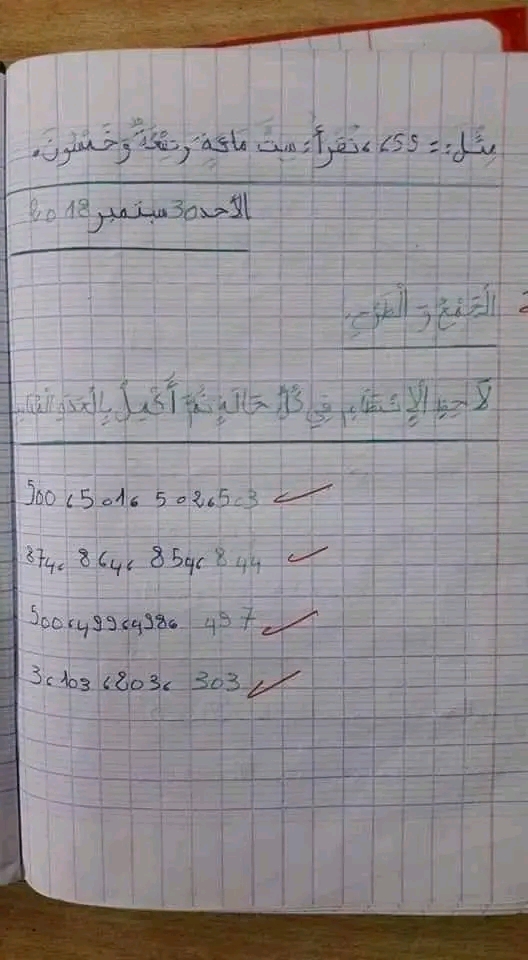 مثل: 659، نقرأ: ست مائة وتسعة وخمسون.
الأحد 30 سبتمبر 2018
الْجَمْعُ وَ الْطَرْحِ.
لَاحِظِ الْإِنْتِظَامِ فِي كُلِّ حَالَةٍ ثُمَّ أَكْمِلُ بِالْعَدَدِ
500، 501، 502، 503
874، 864، 854، 844
500، 499، 498، 497
3، 103، 203، 303